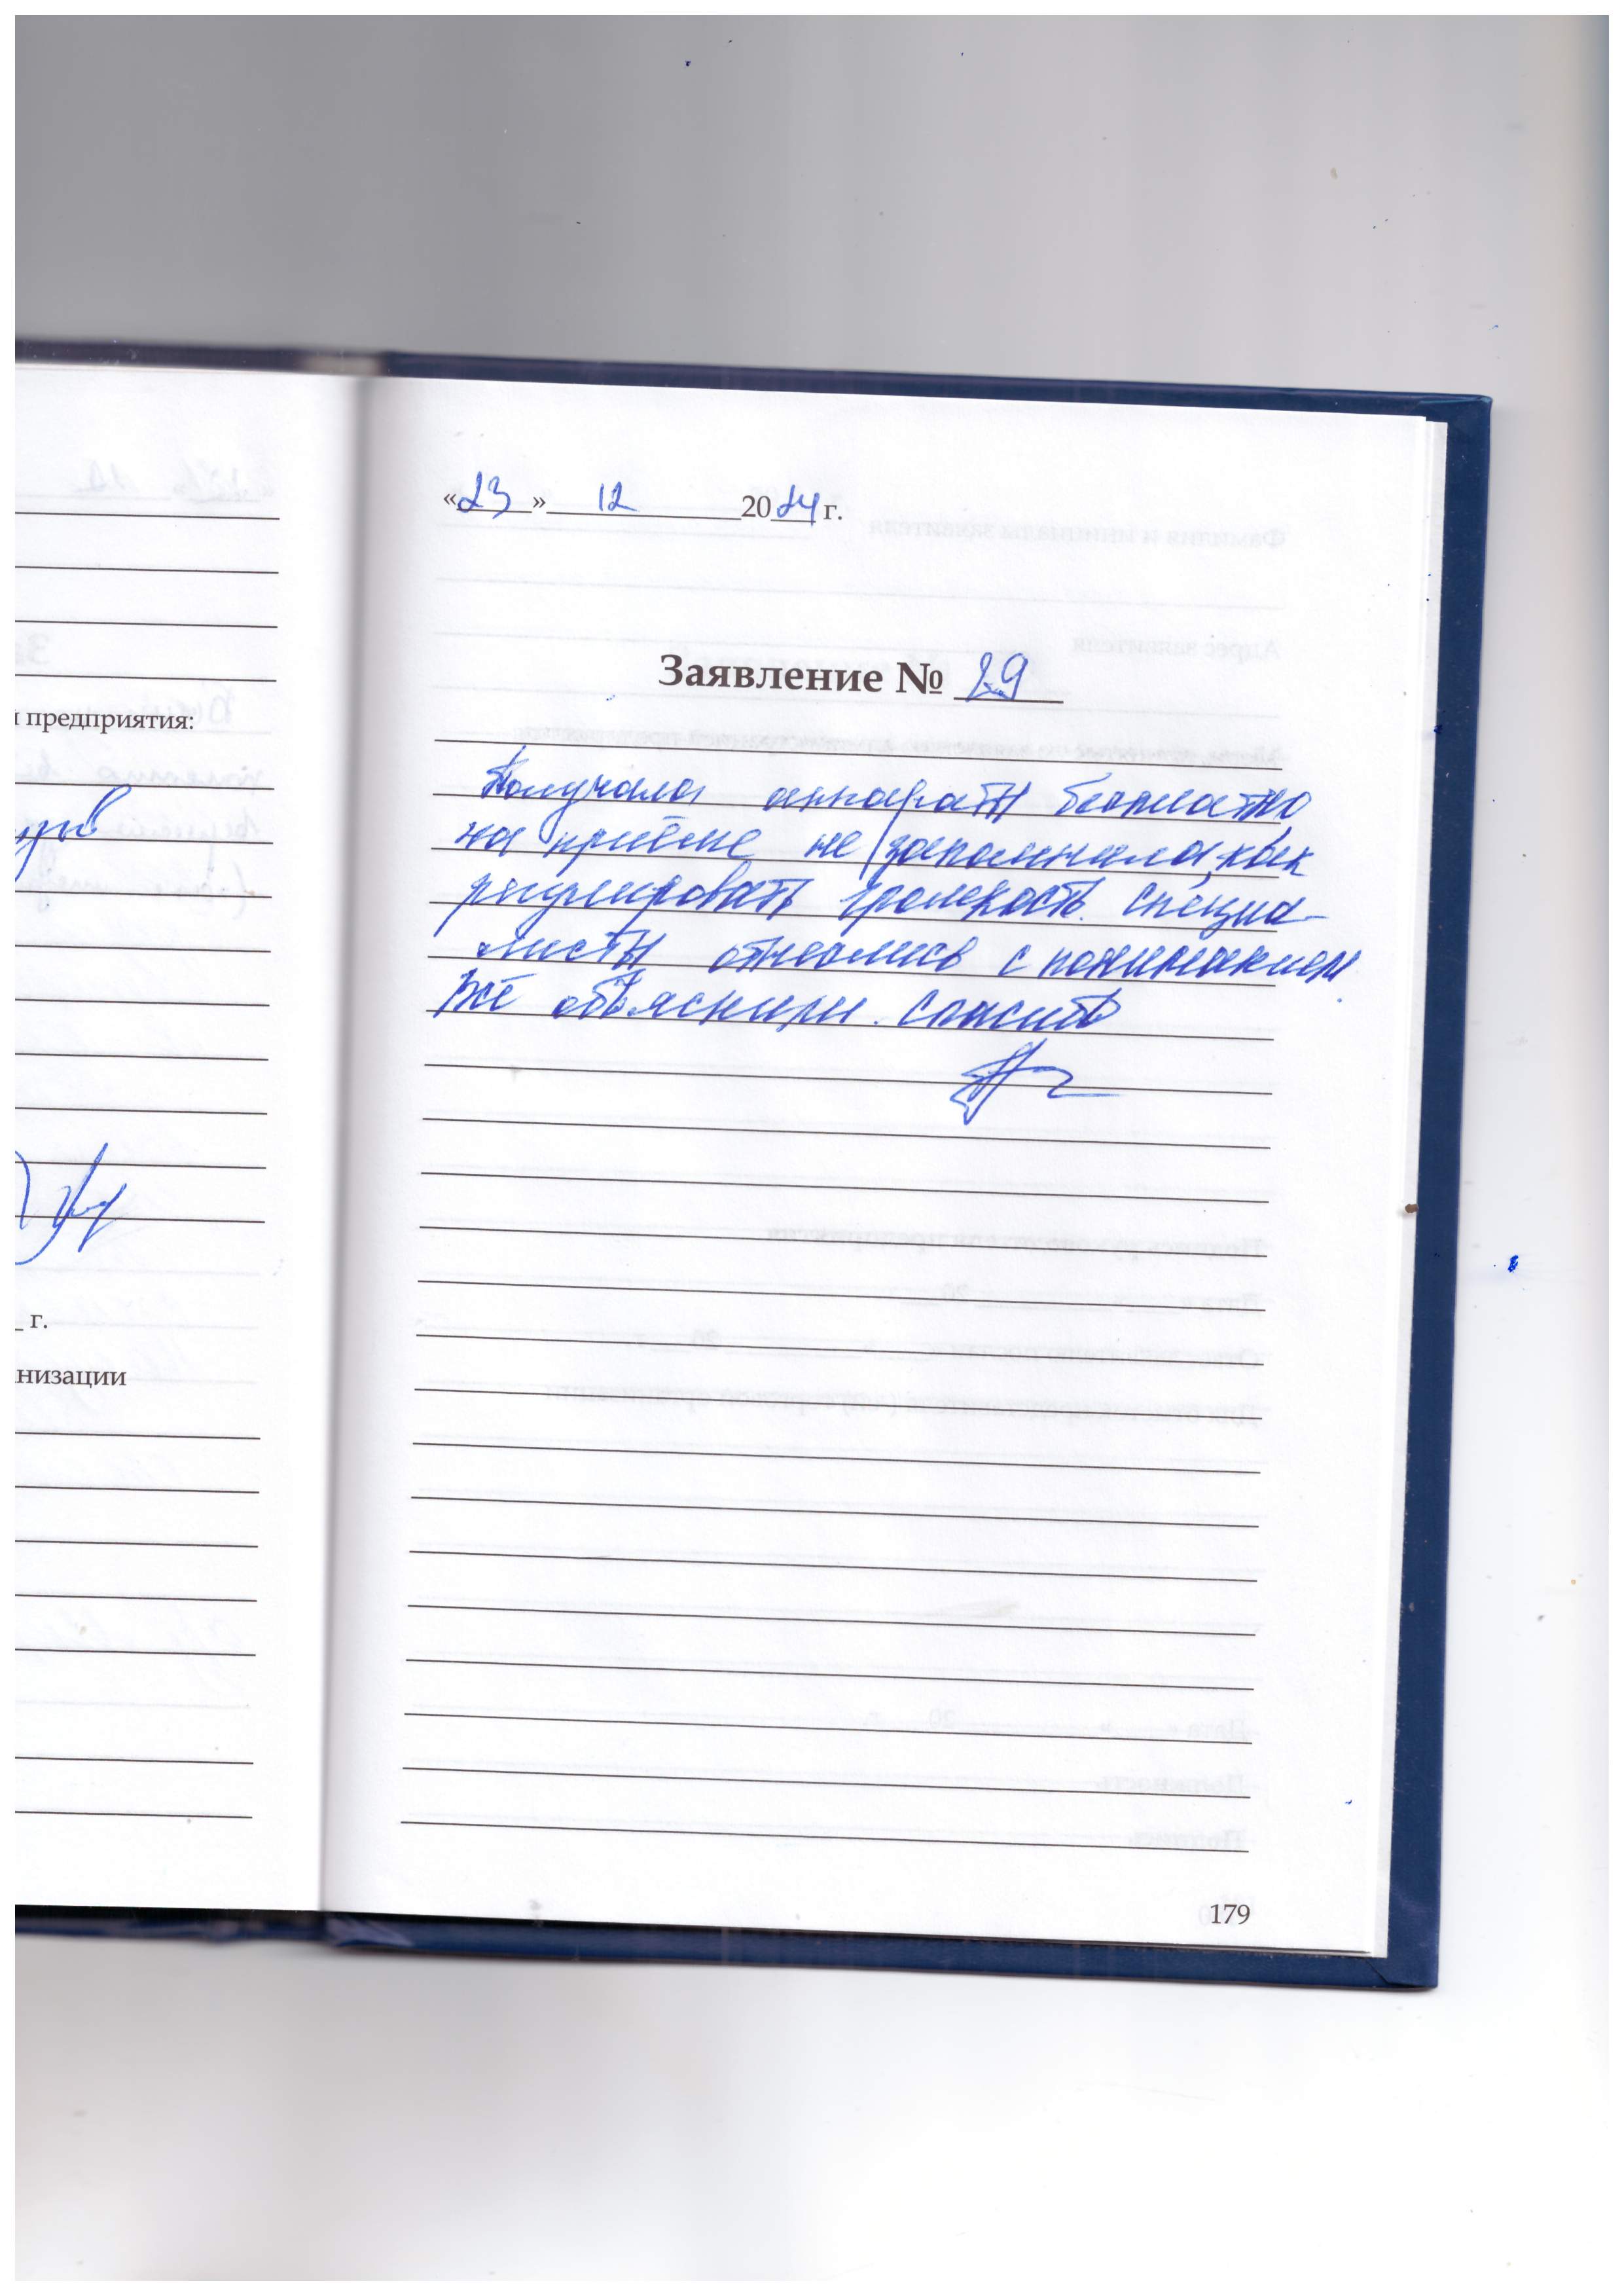 «23» 12 2024 г.
Заявление № 29
Получала аппараты бесплатно
на приёме не запомнила, как
регулировать громкость. Специа-
листы отнеслись с пониманием
Всё объяснили. Спасибо
179
и предприятия:
г.
низации